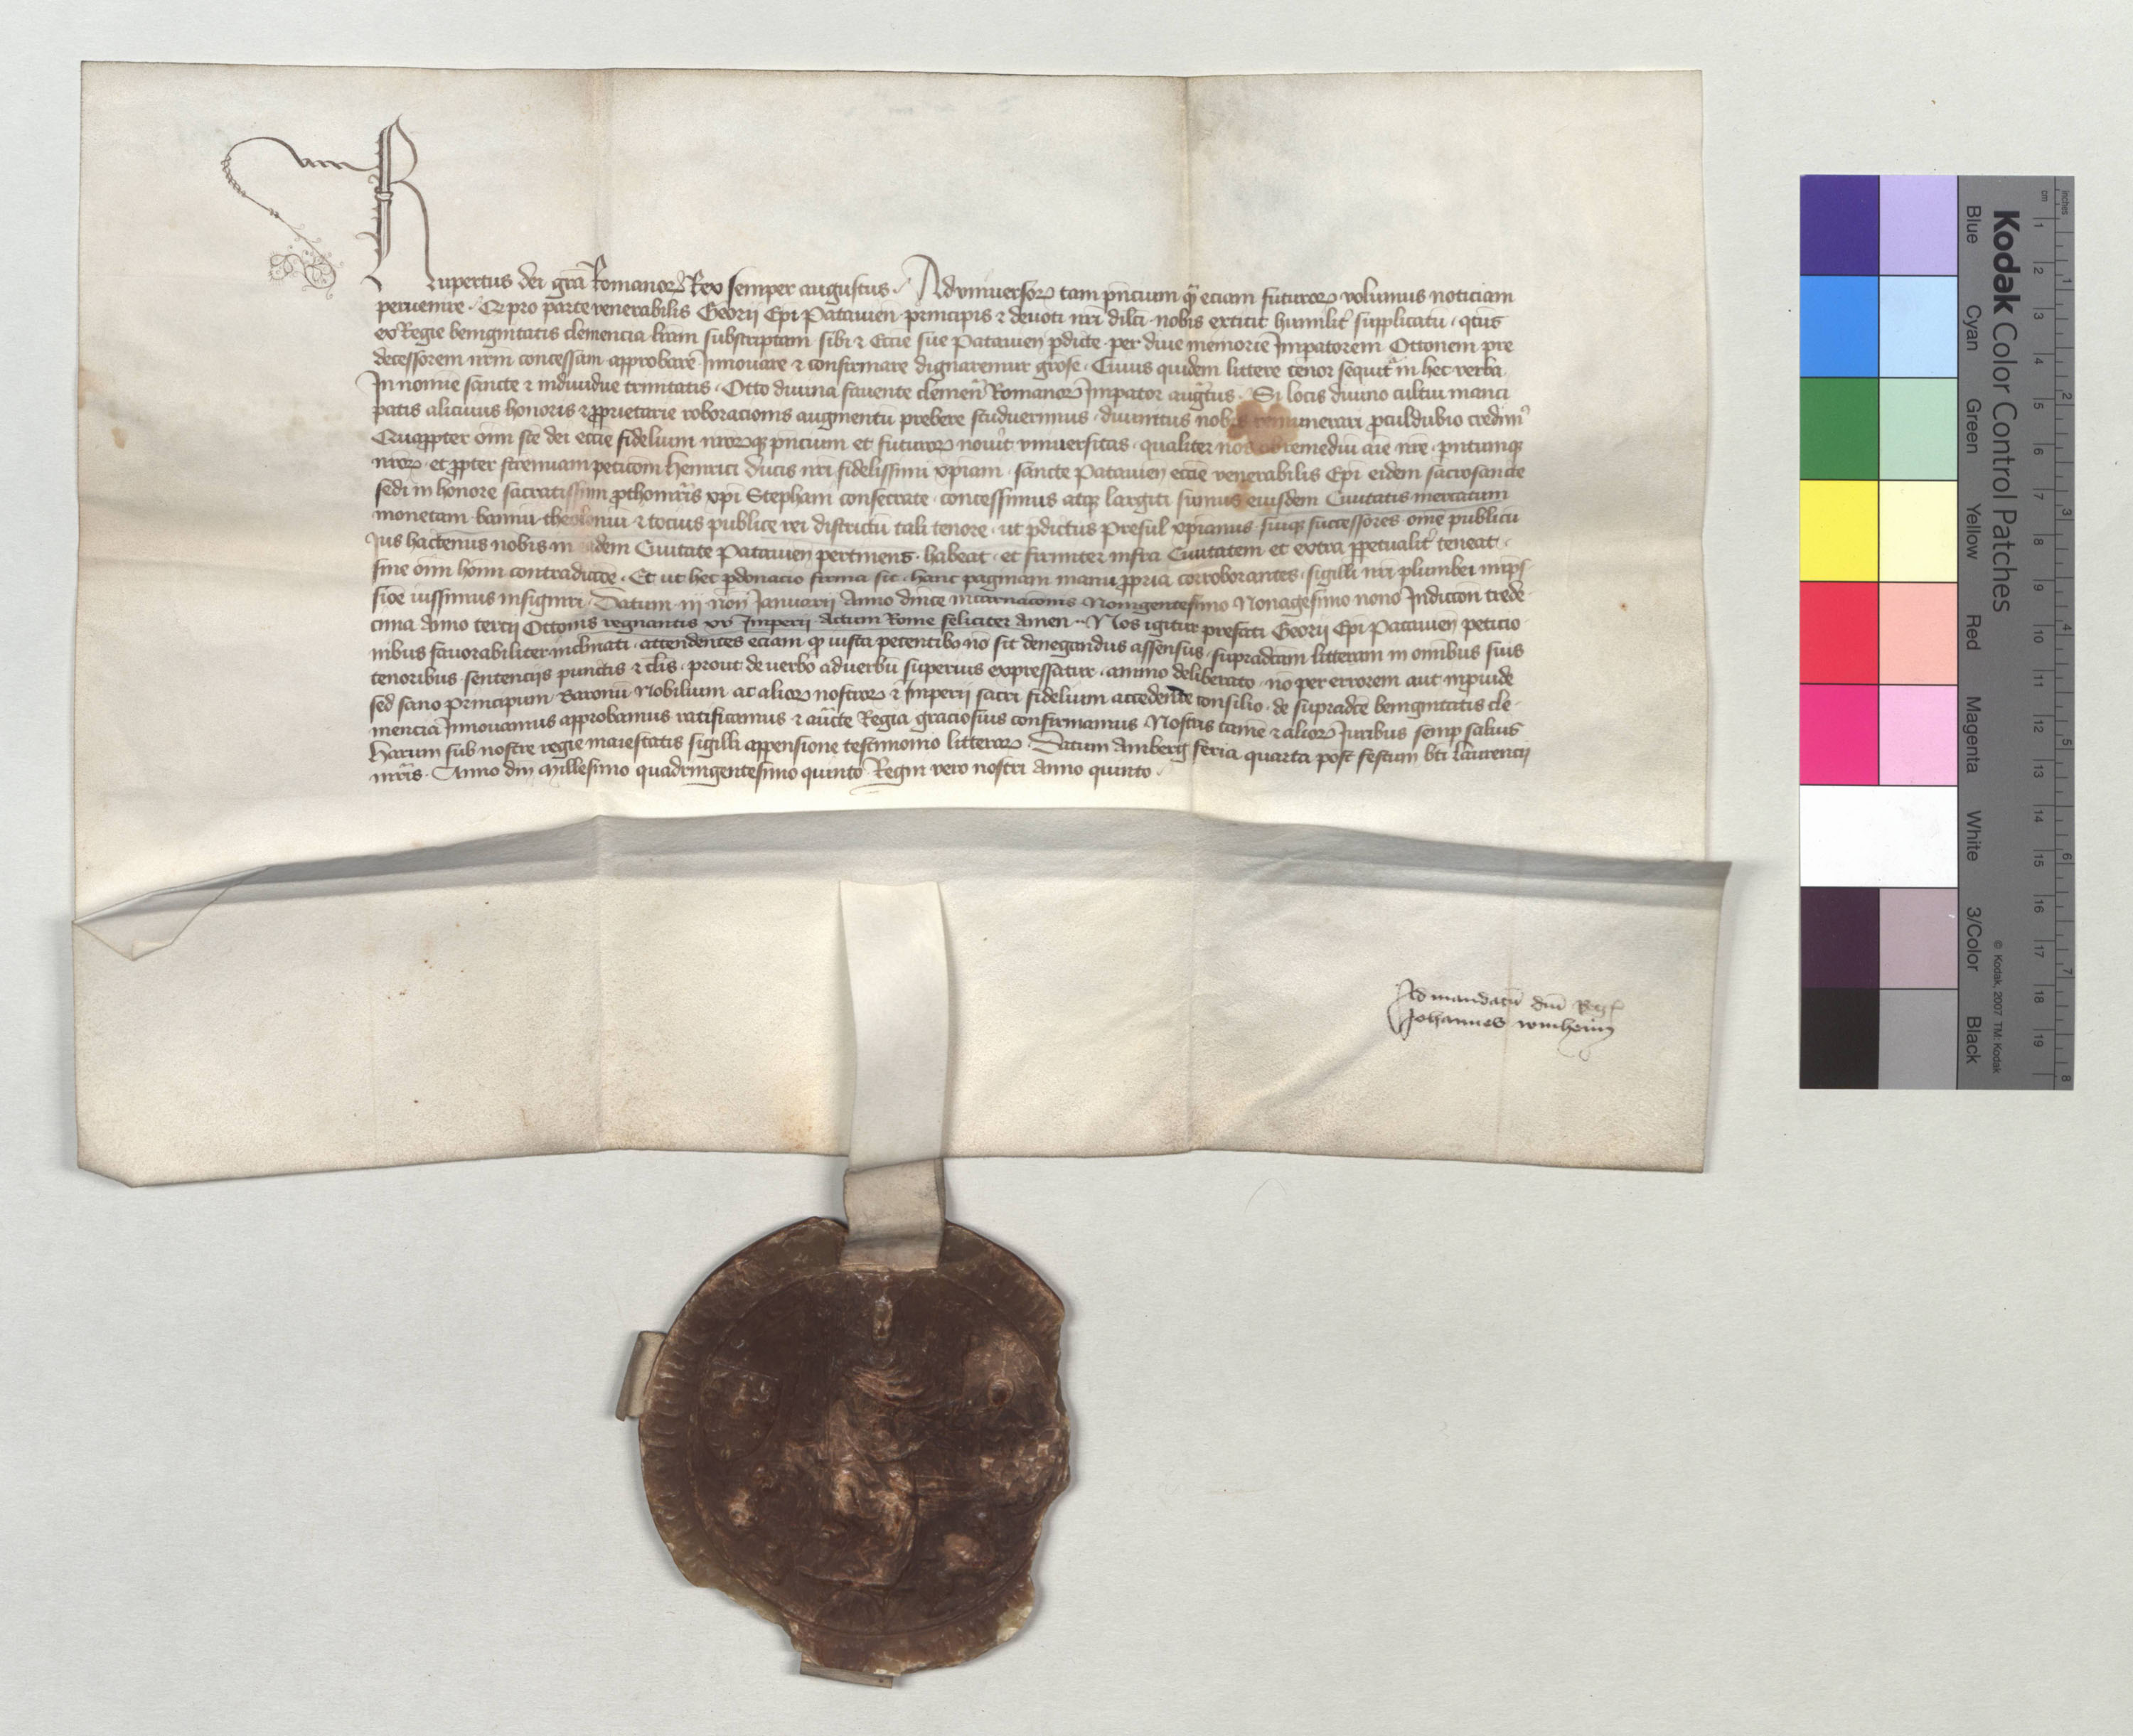 Rupertus dei gra Romanoꝝ Rex semper augustus. Ad vniuersoꝝ tam pncium qͣ eciam futuroꝝ volumus noticiam
peruenire. Qr pro parte venerabilis Georij Epi Patauien principis ⁊ deuoti nri dilci nobis extitit humilit supplicatū. qtus
ex Regie benignitatis clemencia lram subscriptam sibi ⁊ Eccie sue Patauien pdicte per diue memorie Impatorem Ottonem pre
decessorem nrm concessam approbare Innouare ⁊ confirmare dignaremur grose. Cuius quidem littere tenor sequit in hec verba
In nomine sancte ⁊ indiuidue trinitatis. Otto diuina fauente clemen Romanoꝝ Impator augtus. Si locis diuino cultui manci
patis alicuius honoris ⁊ ꝓprietarie roboracionis augmentū prebere studuerimus. diuinitus nobis remunerari ꝓculdubio credim
Quaꝓpter oim sce dei eccie fidelium nroꝝqꝫ pncium et futuroꝝ nouit vniuersitas. qualiter nos ob remediū aie nre. pntumqꝫ
nroꝝ. et ꝓpter strenuam peticom Henrici ducis nri fidelissimi xpiani. sancte Patauien eccie venerabilis Epi eidem sacrosancte
sedi in honore sacratissimi ꝓthomris xpi Stephani consecrate. concessimus atqꝫ largiti sumus eiusdem Ciuitatis mercatum
monetam. bannū. theoloniū ⁊ tocius publice rei districtū tali tenore. ut pdictus Presul xpianus. suiqꝫ successores. ome publicū
Jus hactenus nobis in eadem Ciuitate Patauien pertinens. habeat. et firmiter infra Ciuitatem et extra ꝑpetualit teneat.
sine oim hom contradiccoe. Et ut hec pdonacio firma sit. hanc paginam manu ꝓpria corroborantes. sigilli nri plumbei imps
sioe iussimus insigniri. Datum iij non Januarij Anno dnice incarnacionis Noningentesimo Nonagesimo nono Indiccon trede
cima Anno tercij Ottonis regnantis xv Imperij. Actum Rome feliciter amen. Nos igitur prefati Georij Epi Patauien peticio
nibus fauorabiliter inclinati. attendentes eciam qꝫ iusta petentibꝫ nō sit denegandus assensus. supradcam litteram in omibus suis
tenoribus. sentencijs punctis ⁊ clis. prout de verbo ad verbū superius expressatur. animo deliberato. nō per errorem aut inprouide
sed sano Principum. Baronū. Nobilium. ac alioꝝ nostroꝝ ⁊ Imperij sacri fidelium accedente consilio. de supradce benignitatis cle
mencia Innouamus approbamus ratificamus ⁊ aucte Regia graciosius confirmamus. Nostris tame ⁊ alioꝝ Juribus semp saluis
Harum sub nostre regie maiestatis sigilli appensione testimonio litteraꝝ. Datum Amberg feria quarta post festum bti Laurencij
mris. Anno dni Millesimo quadringentesimo quinto. Regni vero nostri Anno quinto.
Ad mandatū dni Regis
Johannes winheim
Kodak Color Control Patches
Blue Cyan Green Yellow Red Magenta White 3/Color Black
© Kodak, 2007 TM: Kodak
cm 1 2 3 4 5 6 7 8 9 10 11 12 13 14 15 16 17 18 19
inches 1 2 3 4 5 6 7 8